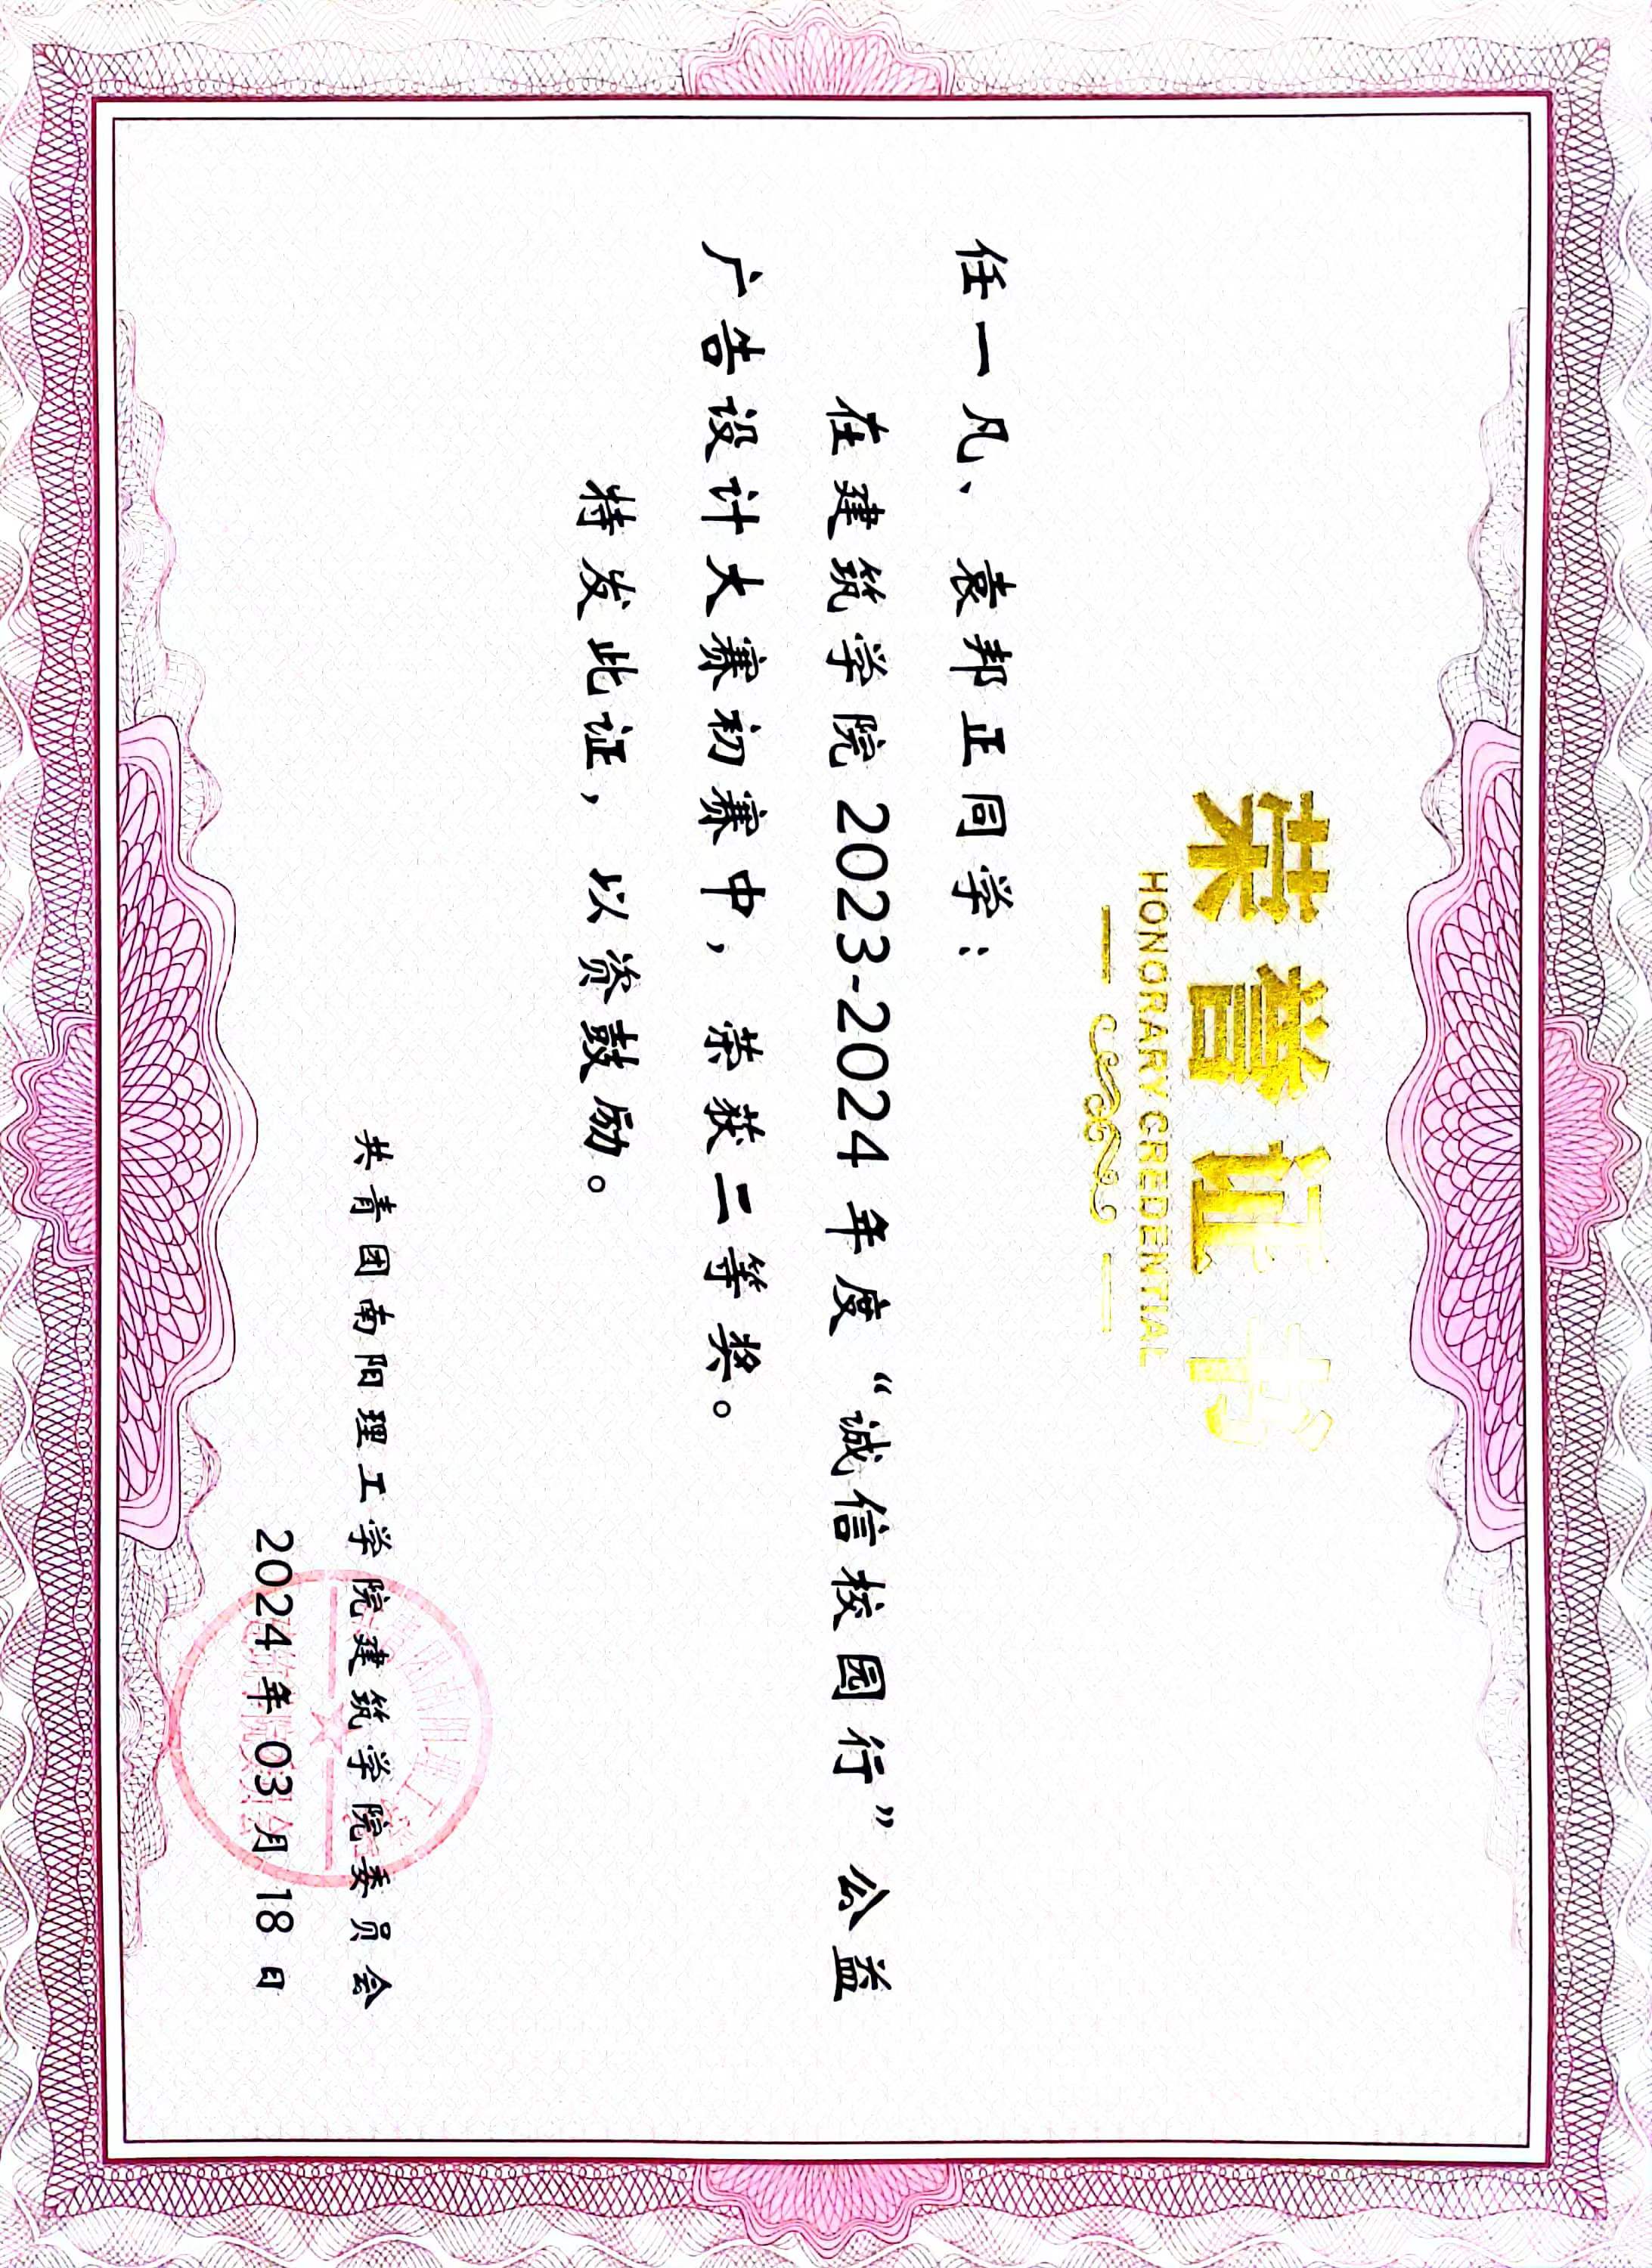 荣誉证书
HONORARY CREDENTIAL
任一凡、袁邦正同学：
在建筑学院2023-2024年度“诚信校园行”公益
广告设计大赛初赛中，荣获二等奖。
特发此证，以资鼓励。
共青团南阳理工学院建筑学院委员会
2024年03月18日